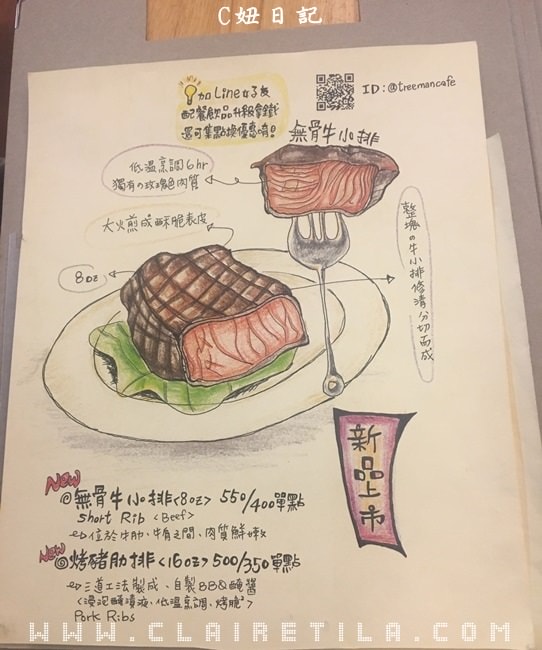 C妞日記
加Line好友
配餐飲品升級拿鐵
還可集點換優惠唷!
ID:@treemancafe
無骨牛小排
低溫烹調6hr
獨有の玫瑰色肉質
大火煎成酥脆表皮
8oz
整塊の牛小排修清分切而成
新品上市
New
@無骨牛小排<8oz> 550/400單點
Short Rib <Beef>
位於牛肋、牛脊之間、肉質鮮嫩
New
@烤豬肋排<16oz> 500/350單點
三道工法製成、自製BBQ醃醬
<浸泡醃漬液、低溫烹調、烤脆>
Pork Ribs
WWW.CLAIRETILA.COM